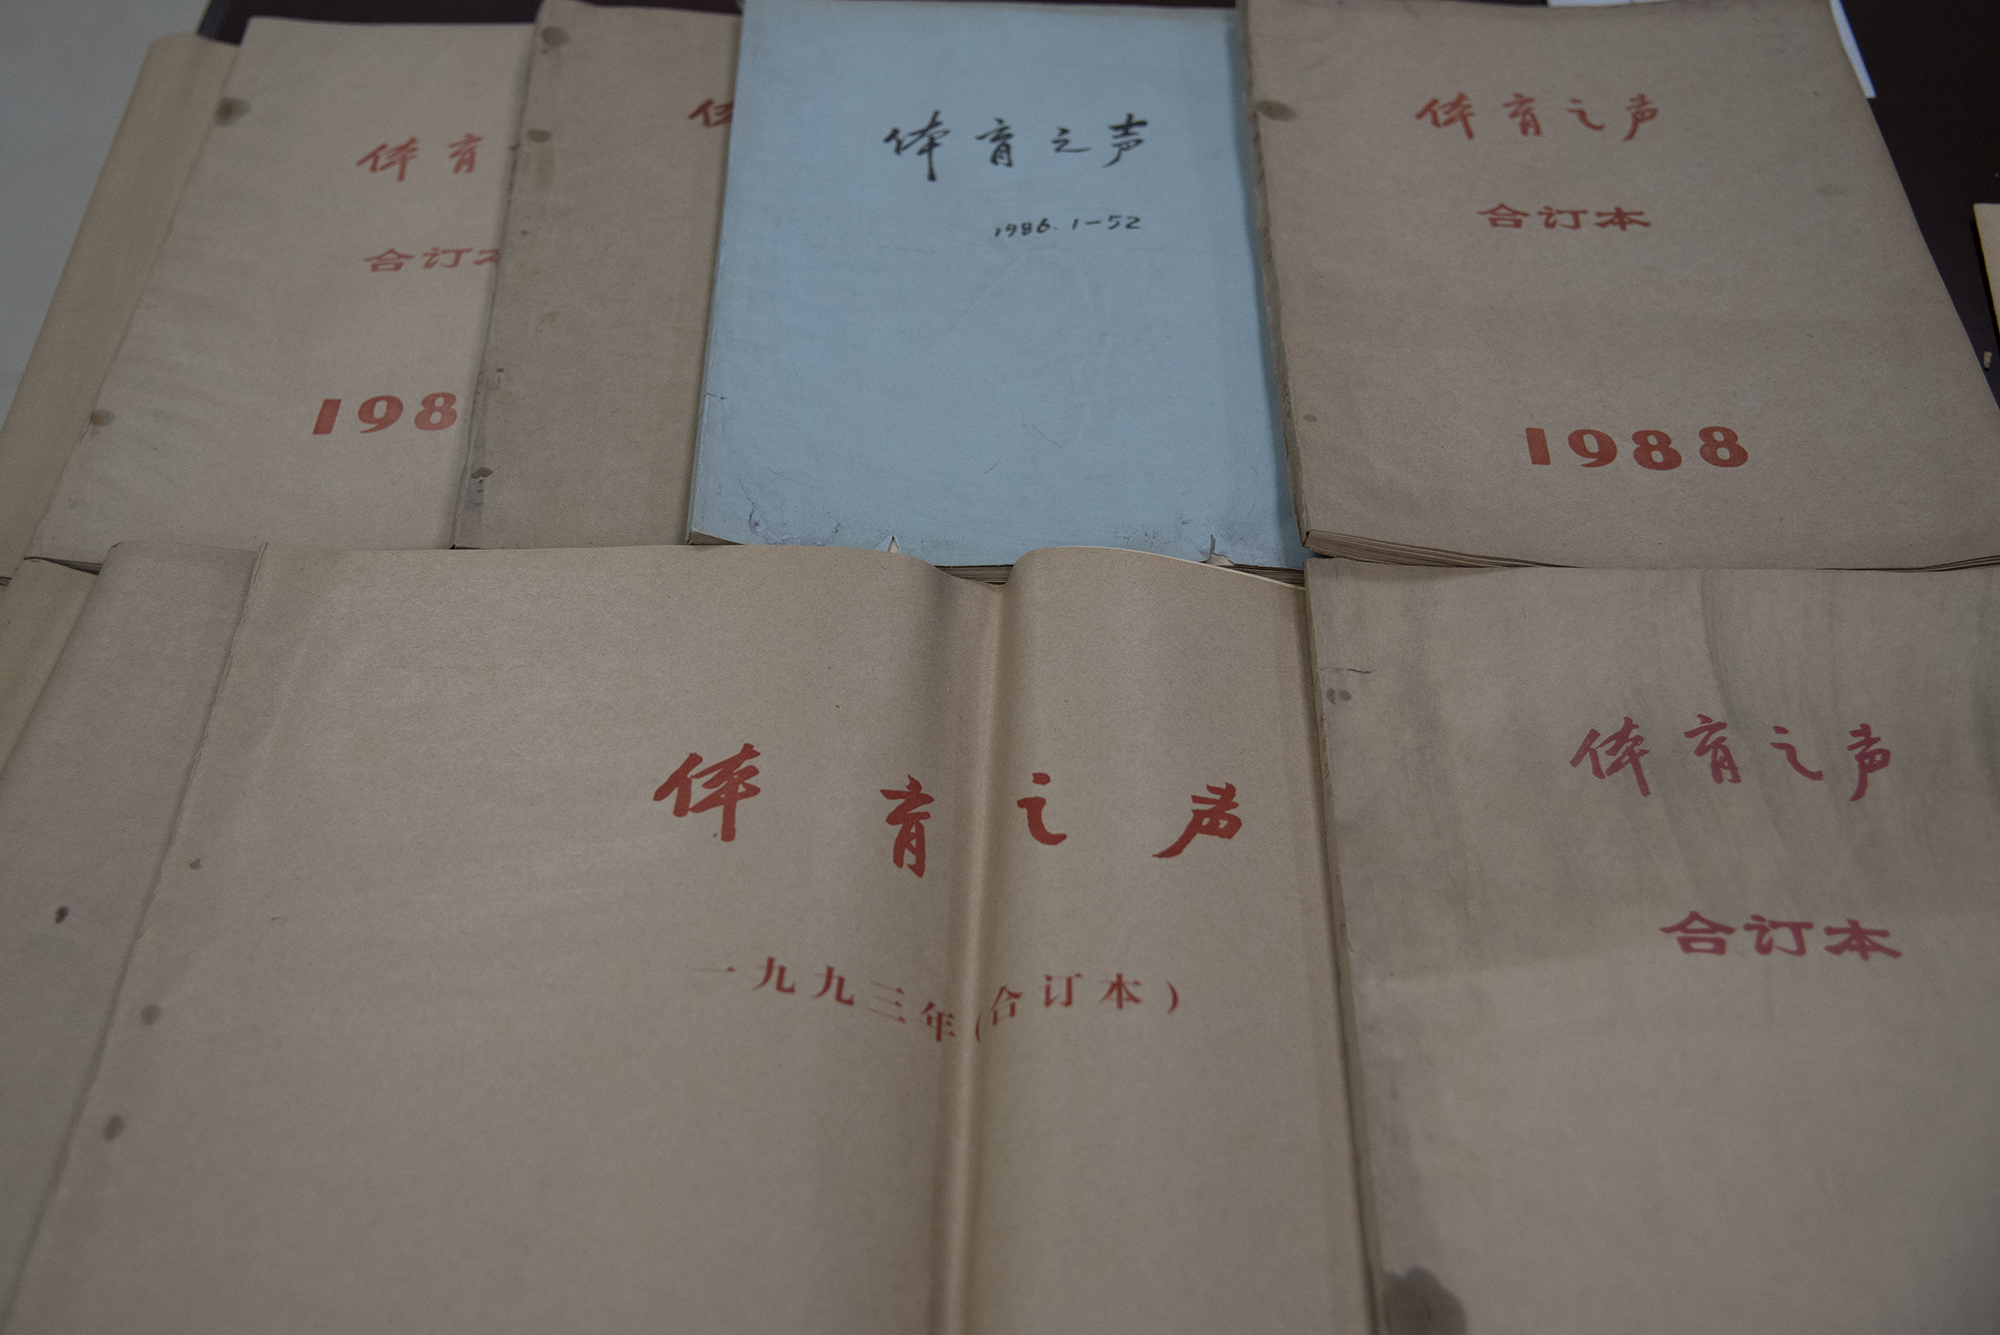 体育
合订
198
体育之声
1986.1-52
体育之声
合订本
1988
体育之声
一九九三年(合订本)
体育之声
合订本